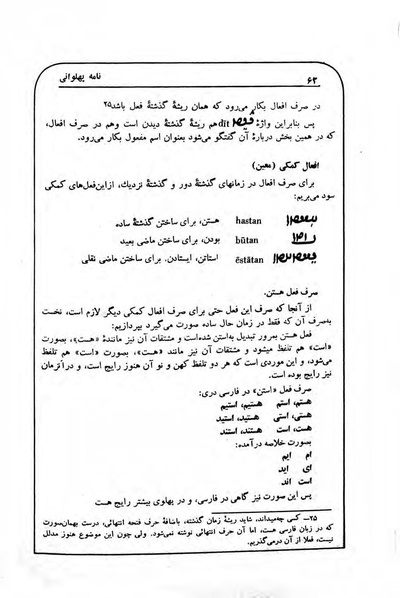 ۶۳ نامه پهلوانی
در صرف افعال بکار می‌رود که همان ریشهٔ گذشتهٔ فعل باشد۲۵
پس بنابراین واژهٔ dīt هم ریشهٔ گذشتهٔ دیدن است وهم در صرف افعال،
که در همین بخش دربارهٔ آن گفتگو می‌شود بعنوان اسم مفعول بکار می‌رود.
افعال کمکی (معین)
برای صرف افعال در زمانهای گذشتهٔ دور و گذشتهٔ نزدیك، ازاین‌فعل‌های کمکی
سود می‌بریم:
hastan هستن، برای ساختن گذشتهٔ ساده
būtan بودن، برای ساختن ماضی بعید
ēstātan استاتن، ایستادن. برای ساختن ماضی نقلی
صرف فعل هستن.
از آنجا که صرف این فعل حتی برای صرف افعال کمکی دیگر لازم است، نخست
به‌صرف آن که فقط در زمان حال ساده صورت می‌گیرد بپردازیم:
فعل هستن بمرور تبدیل به‌استن شده‌است و مشتقات آن نیز مانندهٔ «هست»، بصورت
«است» هم تلفظ میشود و مشتقات آن نیز مانند «هست»، بصورت «است» هم تلفظ
می‌شود، و این موردی است که هر دو تلفظ کهن و نو آن هنوز رایج است، و درآنزمان
نیز رایج بوده است.
صرف فعل «استن» در فارسی دری:
هستم، استم هستیم، استیم
هستی، استی هستید، استید
هست، است هستند، استند
بصورت خلاصه درآمده:
ام ایم
ای اید
است اند
پس این صورت نیز گاهی در فارسی، و در پهلوی بیشتر رایج هست
۲۵– کسی چه‌میداند، شاید ریشهٔ زمان گذشته، باضافهٔ حرف فتحه انتهائی، درست بهمان‌صورت
که در زبان فارسی هست، اما آن حرف انتهائی نوشته نمی‌شود. ولی چون این موضوع هنوز مدلل
نیست، فعلا از آن درمی‌گذریم.